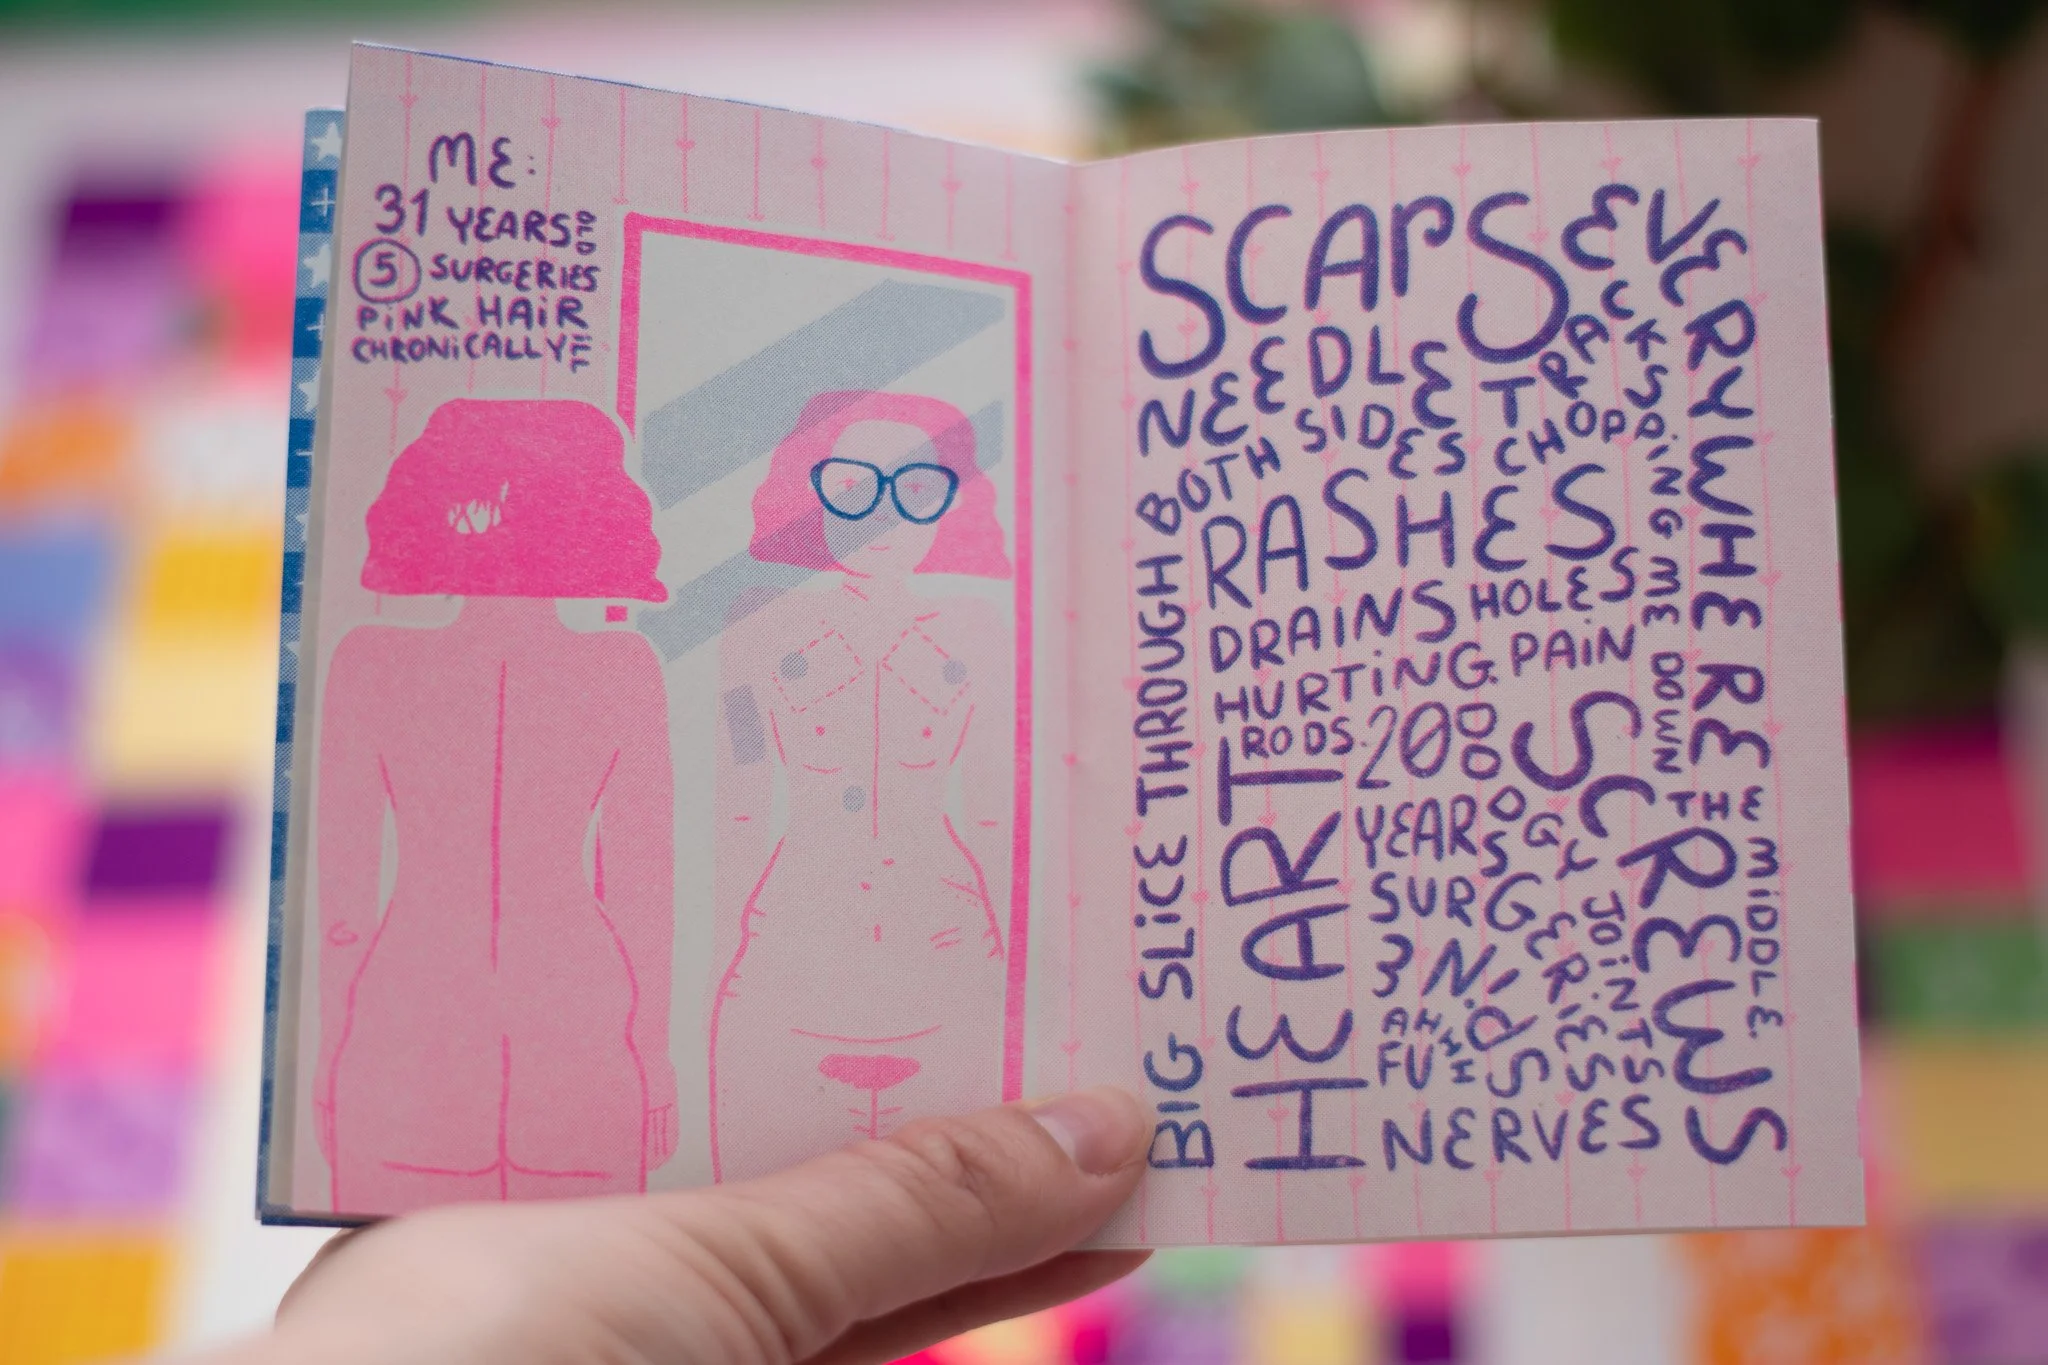 ME:
31 YEARS OLD
5 SURGERIES
PINK HAIR
CHRONICALLY ILL
SCARS EVERYWHERE
NEEDLE TRACKS
BIG SLICE THROUGH BOTH SIDES
CHOPPING ME DOWN THE MIDDLE.
RASHES
DRAINS HOLES
HURTING. PAIN
HEART
RODS.
SCREWS
DODGY JOINTS
YEARS
SURGERIES
NERVES